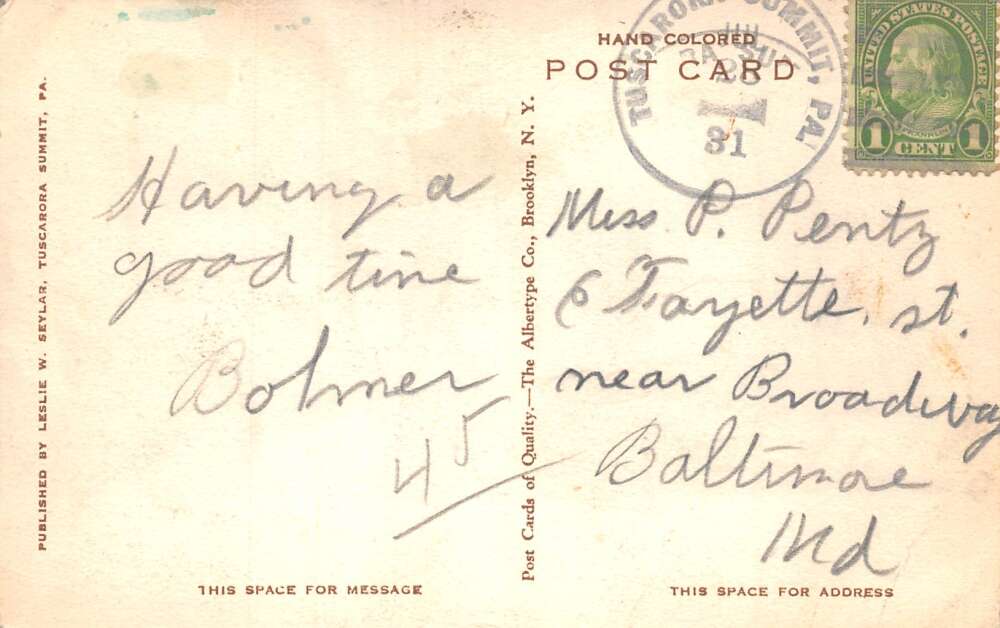 HAND COLORED
POST CARD
TUSCARORA SUMMIT, PA.
28
31
UNITED STATES POSTAGE
1 CENT 1
PUBLISHED BY LESLIE W. SEYLAR, TUSCARORA SUMMIT, PA.
Having a
good time
Bolmer
45
Post Cards of Quality.—The Albertype Co., Brooklyn, N. Y.
Miss P. Pentz
E Fayette. st.
near Broadway
Baltimore
Md
THIS SPACE FOR MESSAGE
THIS SPACE FOR ADDRESS